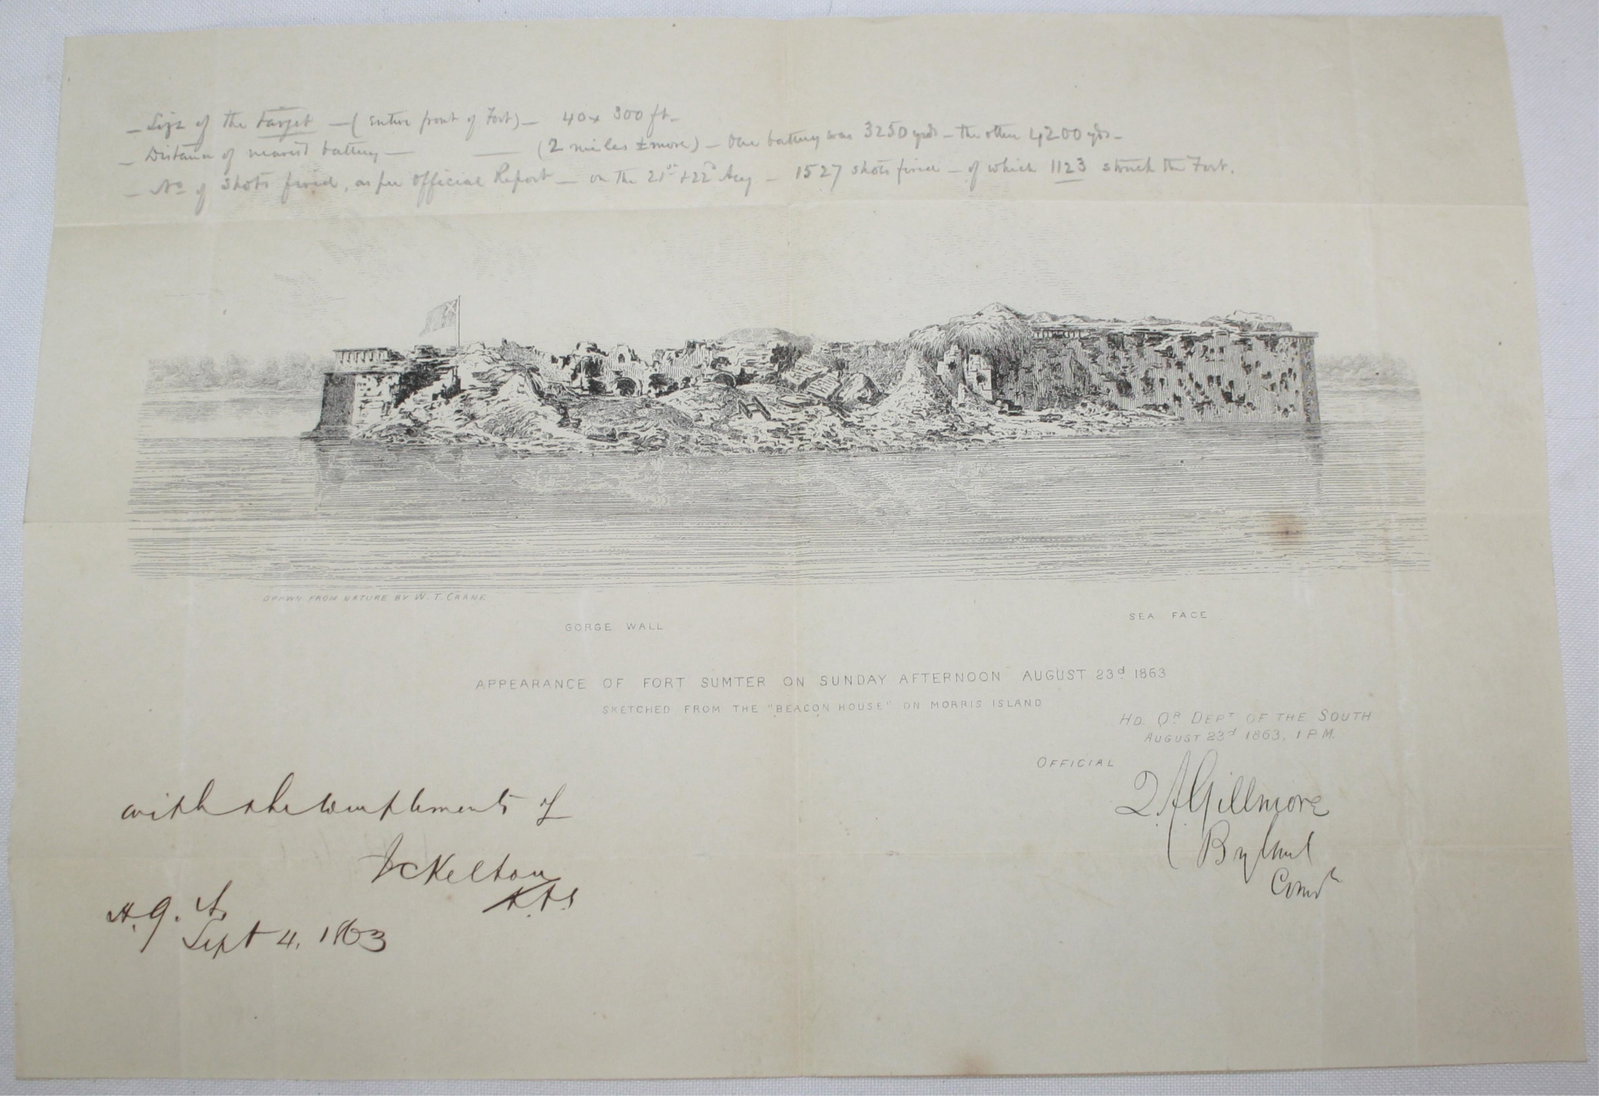 — Size of the target — (entire front of Fort) — 40 x 300 ft —
— Distance of nearest battery — — (2 miles & more) — One battery was 3250 yds — the other 4200 yds —
— No of shots fired, as per Official Report — on the 21st & 22d Aug — 1527 shots fired — of which 1123 struck the Fort.
DRAWN FROM NATURE BY W. T. CRANE
GORGE WALL
SEA FACE
APPEARANCE OF FORT SUMTER ON SUNDAY AFTERNOON AUGUST 23d 1863
SKETCHED FROM THE "BEACON HOUSE" ON MORRIS ISLAND
HD. QR. DEPT OF THE SOUTH
AUGUST 23d 1863, 1 P.M.
OFFICIAL
Q. A. Gillmore
Brig Genl
Comd
with the compliments of
JC Kelton
H. Q. A.
Sept 4, 1863